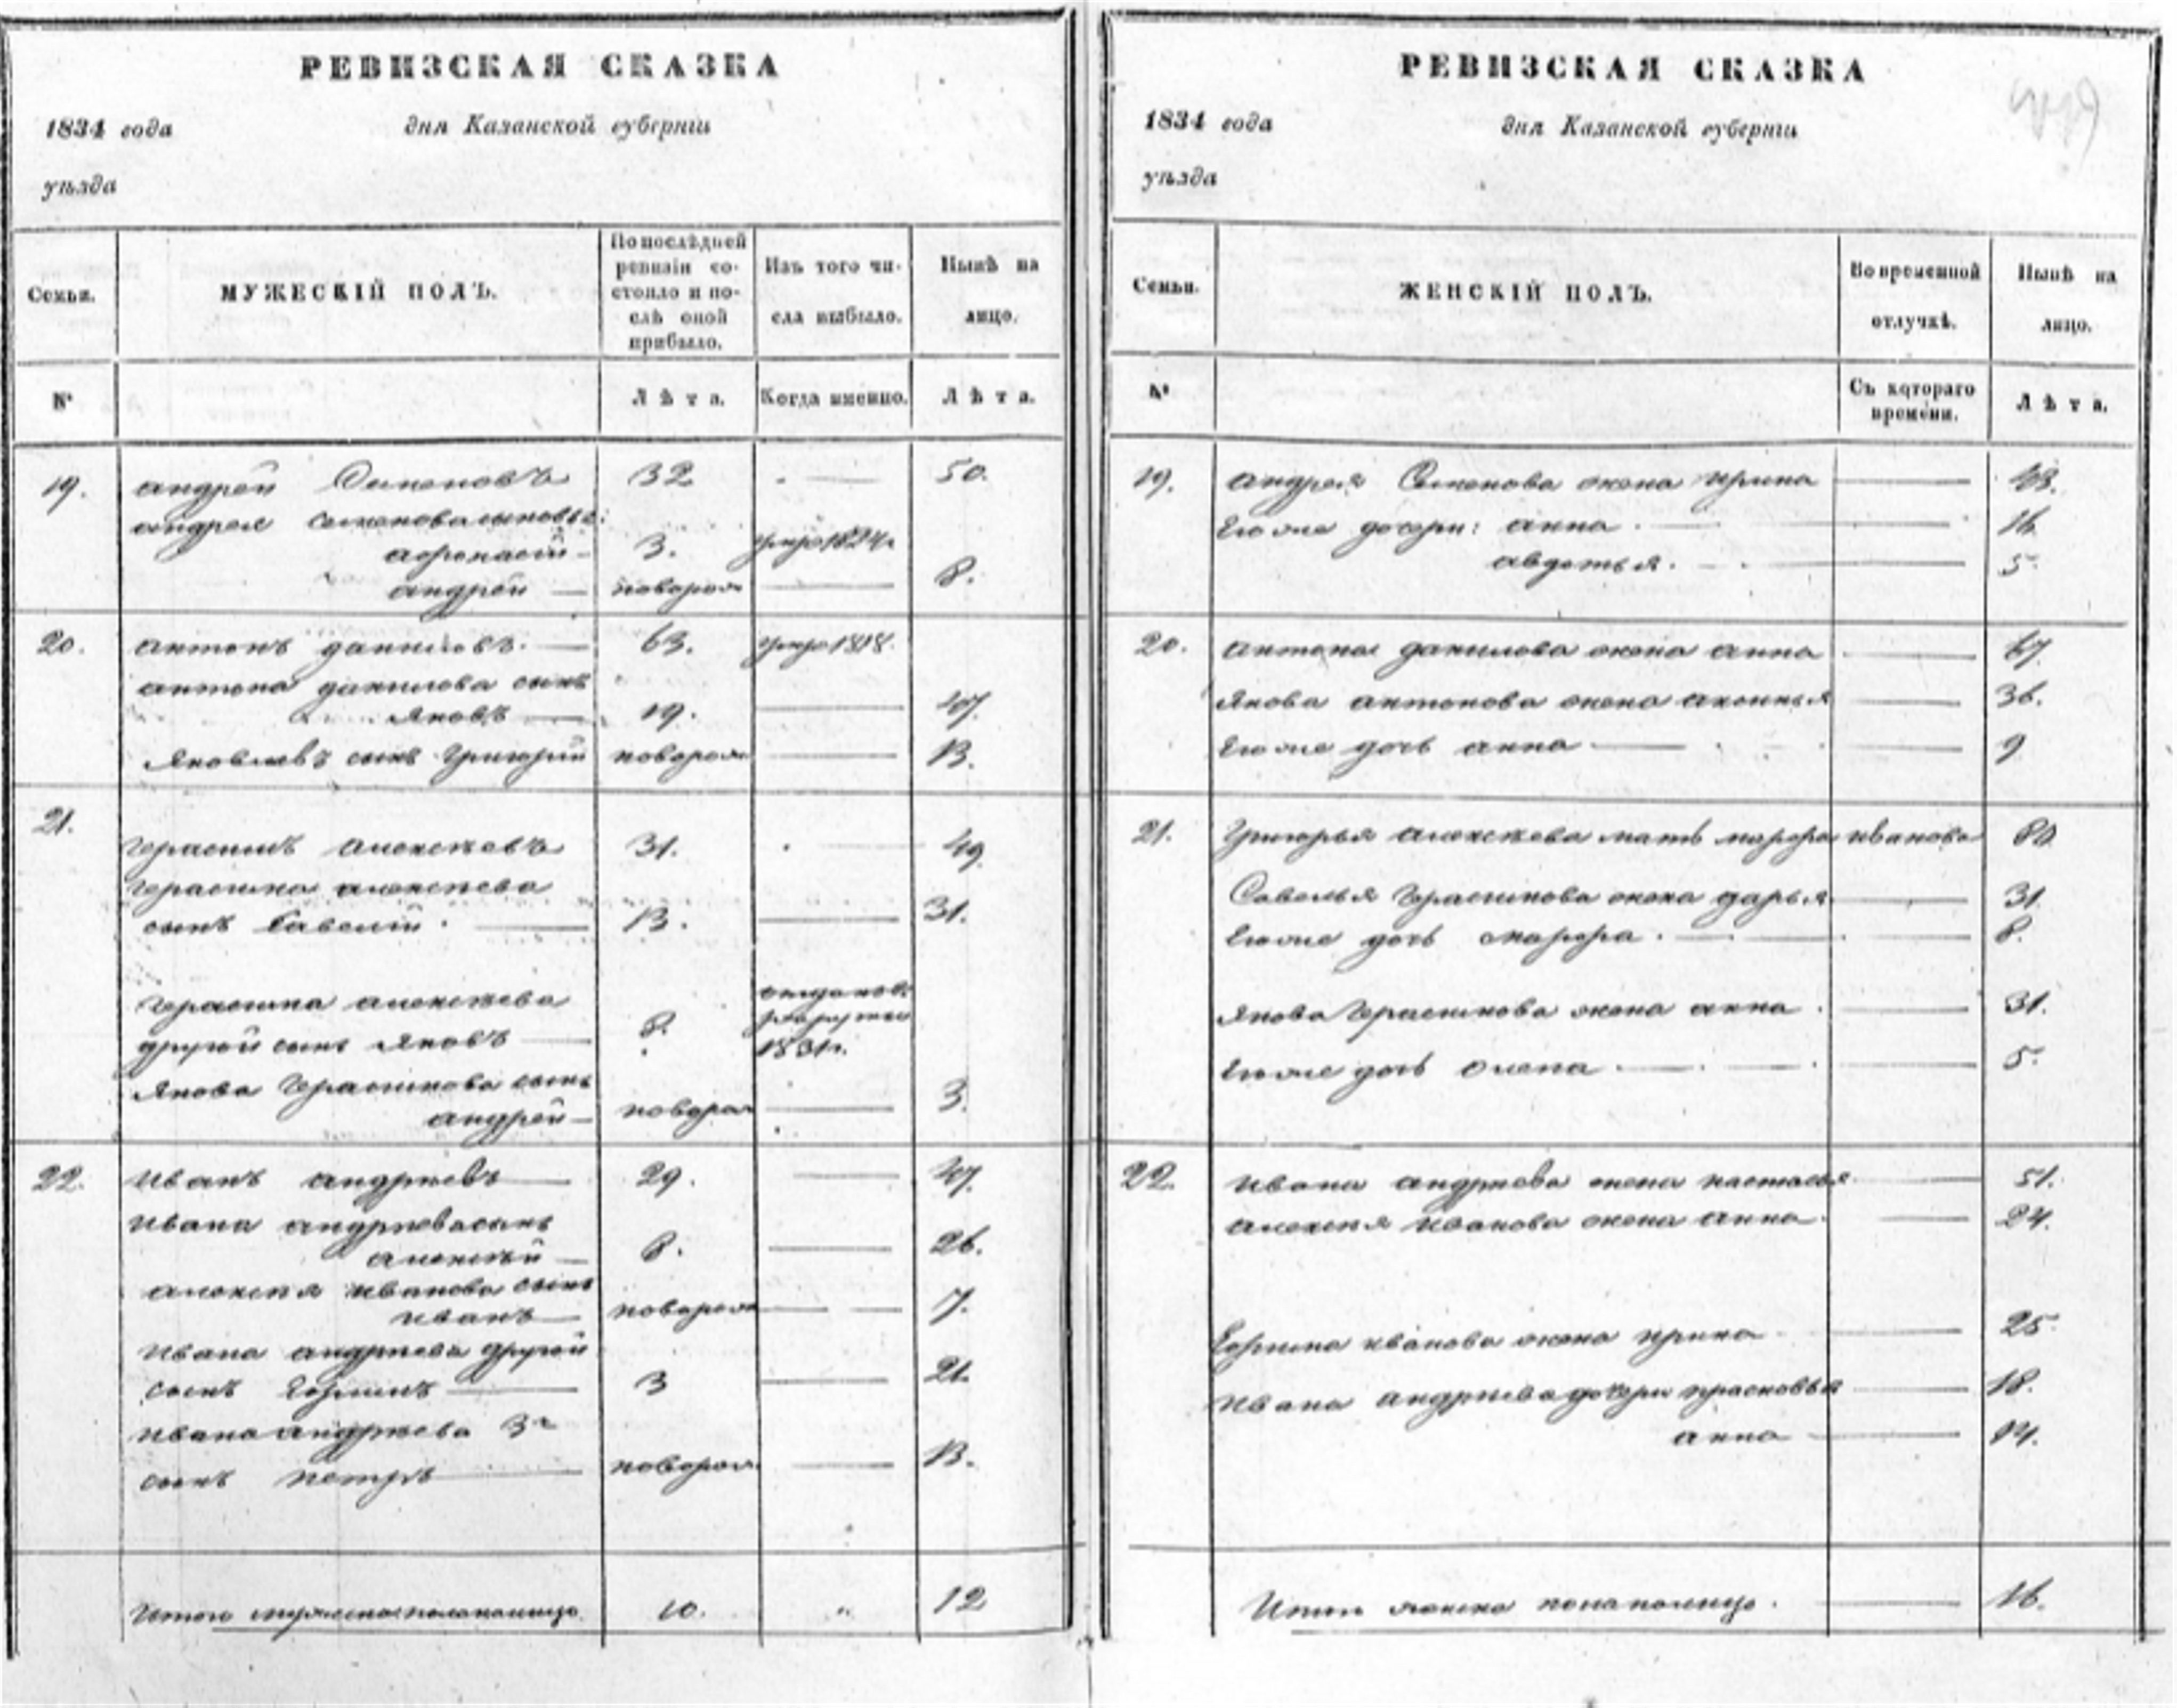 РЕВИЗСКАЯ СКАЗКА
1834 года
дня Казанской губерніи
уѣзда
Семьи.
МУЖЕСКІЙ ПОЛЪ.
По послѣдней
ревизіи со-
стояло и по-
слѣ оной
прибыло.
Изъ того чи-
сла выбыло.
Нынѣ на
лицо.
№
Лѣта.
Когда именно.
Лѣта.
19. андрей Семеновъ 32 50.
андрея семенова сыновья:
афонасій 3. умре 1824
андрей новорож 8.
20. антонъ даниловъ. 63. умре 1818.
антона данилова сынъ
яковъ 19. 37.
яковлевъ сынъ григорій новорож 13.
21.
герасимъ алексѣевъ 31. 49.
герасима алексѣева
сынъ Савелій 13. 31.
герасима алексѣева
другой сынъ яковъ 8. отданъ в рекруты 1831
якова герасимова сынъ
андрей новорож 3.
22. иванъ андрѣевъ 29. 47.
ивана андрѣева сынъ
алексѣй 8. 26.
алексѣя иванова сынъ
иванъ новорож 7.
ивана андрѣева другой
сынъ Ефимъ 3 21.
ивана андрѣева 3й
сынъ петръ новорож 13.
Итого мужеска пола налицо 10. „ 12
РЕВИЗСКАЯ СКАЗКА
1834 года
дня Казанской губерніи
уѣзда
Семьи.
ЖЕНСКІЙ ПОЛЪ.
Во временной
отлучкѣ.
Нынѣ на
лицо.
№
Съ котораго
времени.
Лѣта.
19. андрея Семенова жена ирина 48.
Его же дочери: анна 16.
авдотья. 5
20. антона данилова жена анна 67.
якова антонова жена 36.
Его же дочь анна 9
21. григорья алексѣева мать марфа иванова 80
Савелья герасимова жена дарья 31
Его же дочь марфа. 8.
якова герасимова жена анна 31.
Его же дочь олена 5.
22. ивана андрѣева жена настасья 51.
алексѣя иванова жена анна 24.
Ефима иванова жена ирина 25
ивана андрѣева дочери прасковья 18.
анна 14.
Итого женска пола налицо. 16.